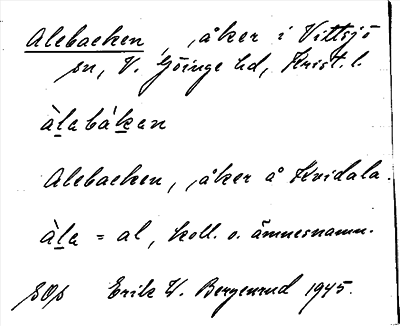 Alebacken, åker i Vittsjö
sn, V. Göinge hd, Krist. l.
àlabákan
Alebacken, åker å Kvidala.
àla = al, koll. o. ämnesnamn.
Erik W. Bergenrud 1945.